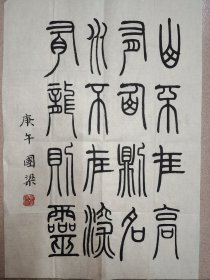 山不在高
有僊則名
水不在深
有龍則靈
庚午 國梁